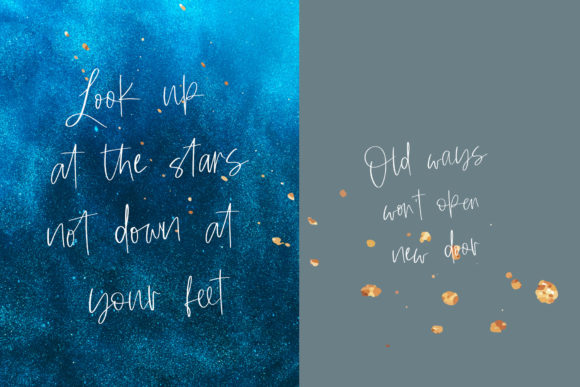 Look up
at the stars
not down at
your feet
Old ways
won't open
new door